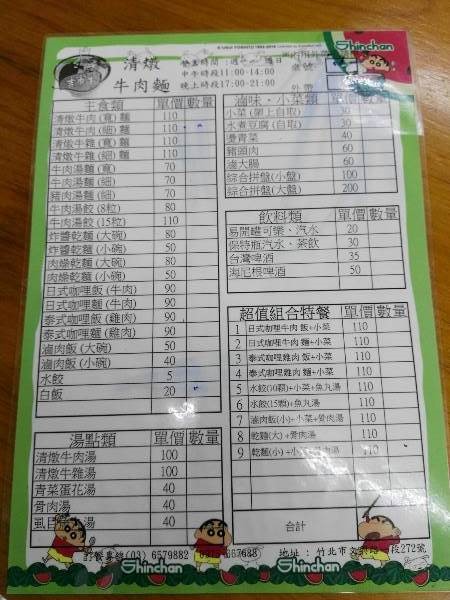 Shinchan
清燉
牛肉麵
中午時段11:00-14:00
晚上時段17:00-21:00
主食類 單價 數量
清燉牛肉(寬)麵 110
清燉牛肉(細)麵 110
清燉牛雜(寬)麵 110
清燉牛雜(細)麵 110
牛肉湯麵(寬) 70
牛肉湯麵(細) 70
豬肉湯麵(細) 70
牛肉湯餃(8粒) 80
牛肉湯餃(15粒) 110
炸醬乾麵(大碗) 80
炸醬乾麵(小碗) 50
肉燥乾麵(大碗) 80
肉燥乾麵(小碗) 50
日式咖哩飯(牛肉) 90
日式咖哩麵(牛肉) 90
泰式咖哩飯(雞肉) 90
泰式咖哩麵(雞肉) 90
滷肉飯(大碗) 50
滷肉飯(小碗) 40
水餃 5
白飯 20
湯點類 單價 數量
清燉牛肉湯 100
清燉牛雜湯 100
青菜蛋花湯 40
骨肉湯 40
湯 40
滷味、小菜類 單價 數量
小菜(架上自取) 30
水煮豆腐(自取) 30
燙青菜 40
豬頭肉 60
滷大腸 60
綜合拼盤(小盤) 100
綜合拼盤(大盤) 200
飲料類 單價 數量
易開罐可樂、汽水 20
保特瓶汽水、茶飲 30
台灣啤酒 35
海尼根啤酒 50
超值組合特餐 單價 數量
1 日式咖哩牛肉飯+小菜 110
2 日式咖哩牛肉麵+小菜 110
3 泰式咖哩雞肉飯+小菜 110
4 泰式咖哩雞肉麵+小菜 110
5 水餃(10顆)+小菜+魚丸湯 110
6 水餃(15顆)+魚丸湯 110
7 滷肉飯(小)+小菜+骨肉湯 110
8 乾麵(大)+骨肉湯 110
9 乾麵(小)+小菜+骨肉湯 110
合計
訂餐專線(03) 6579882
地址：竹北市 段272號
Shinchan
Shinchan